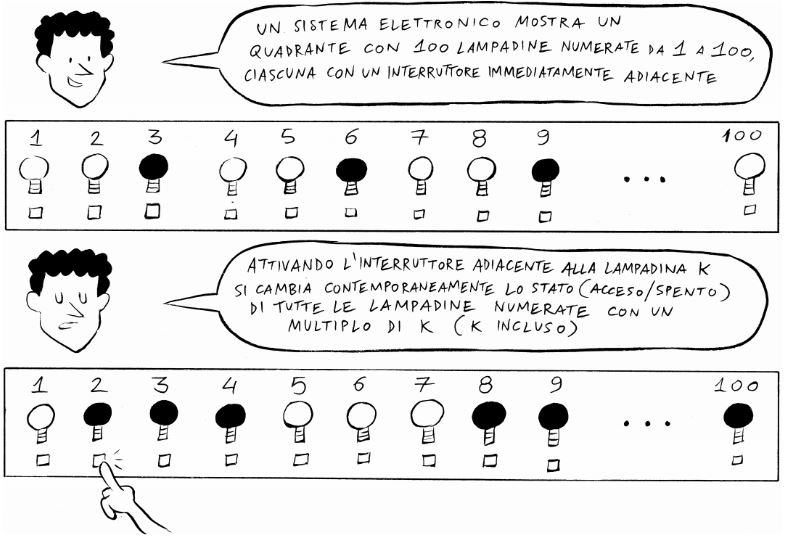 UN SISTEMA ELETTRONICO MOSTRA UN
QUADRANTE CON 100 LAMPADINE NUMERATE DA 1 A 100,
CIASCUNA CON UN INTERRUTTORE IMMEDIATAMENTE ADIACENTE
1 2 3 4 5 6 7 8 9 ... 100
ATTIVANDO L'INTERRUTTORE ADIACENTE ALLA LAMPADINA K
SI CAMBIA CONTEMPORANEAMENTE LO STATO (ACCESO/SPENTO)
DI TUTTE LE LAMPADINE NUMERATE CON UN
MULTIPLO DI K (K INCLUSO)
1 2 3 4 5 6 7 8 9 ... 100